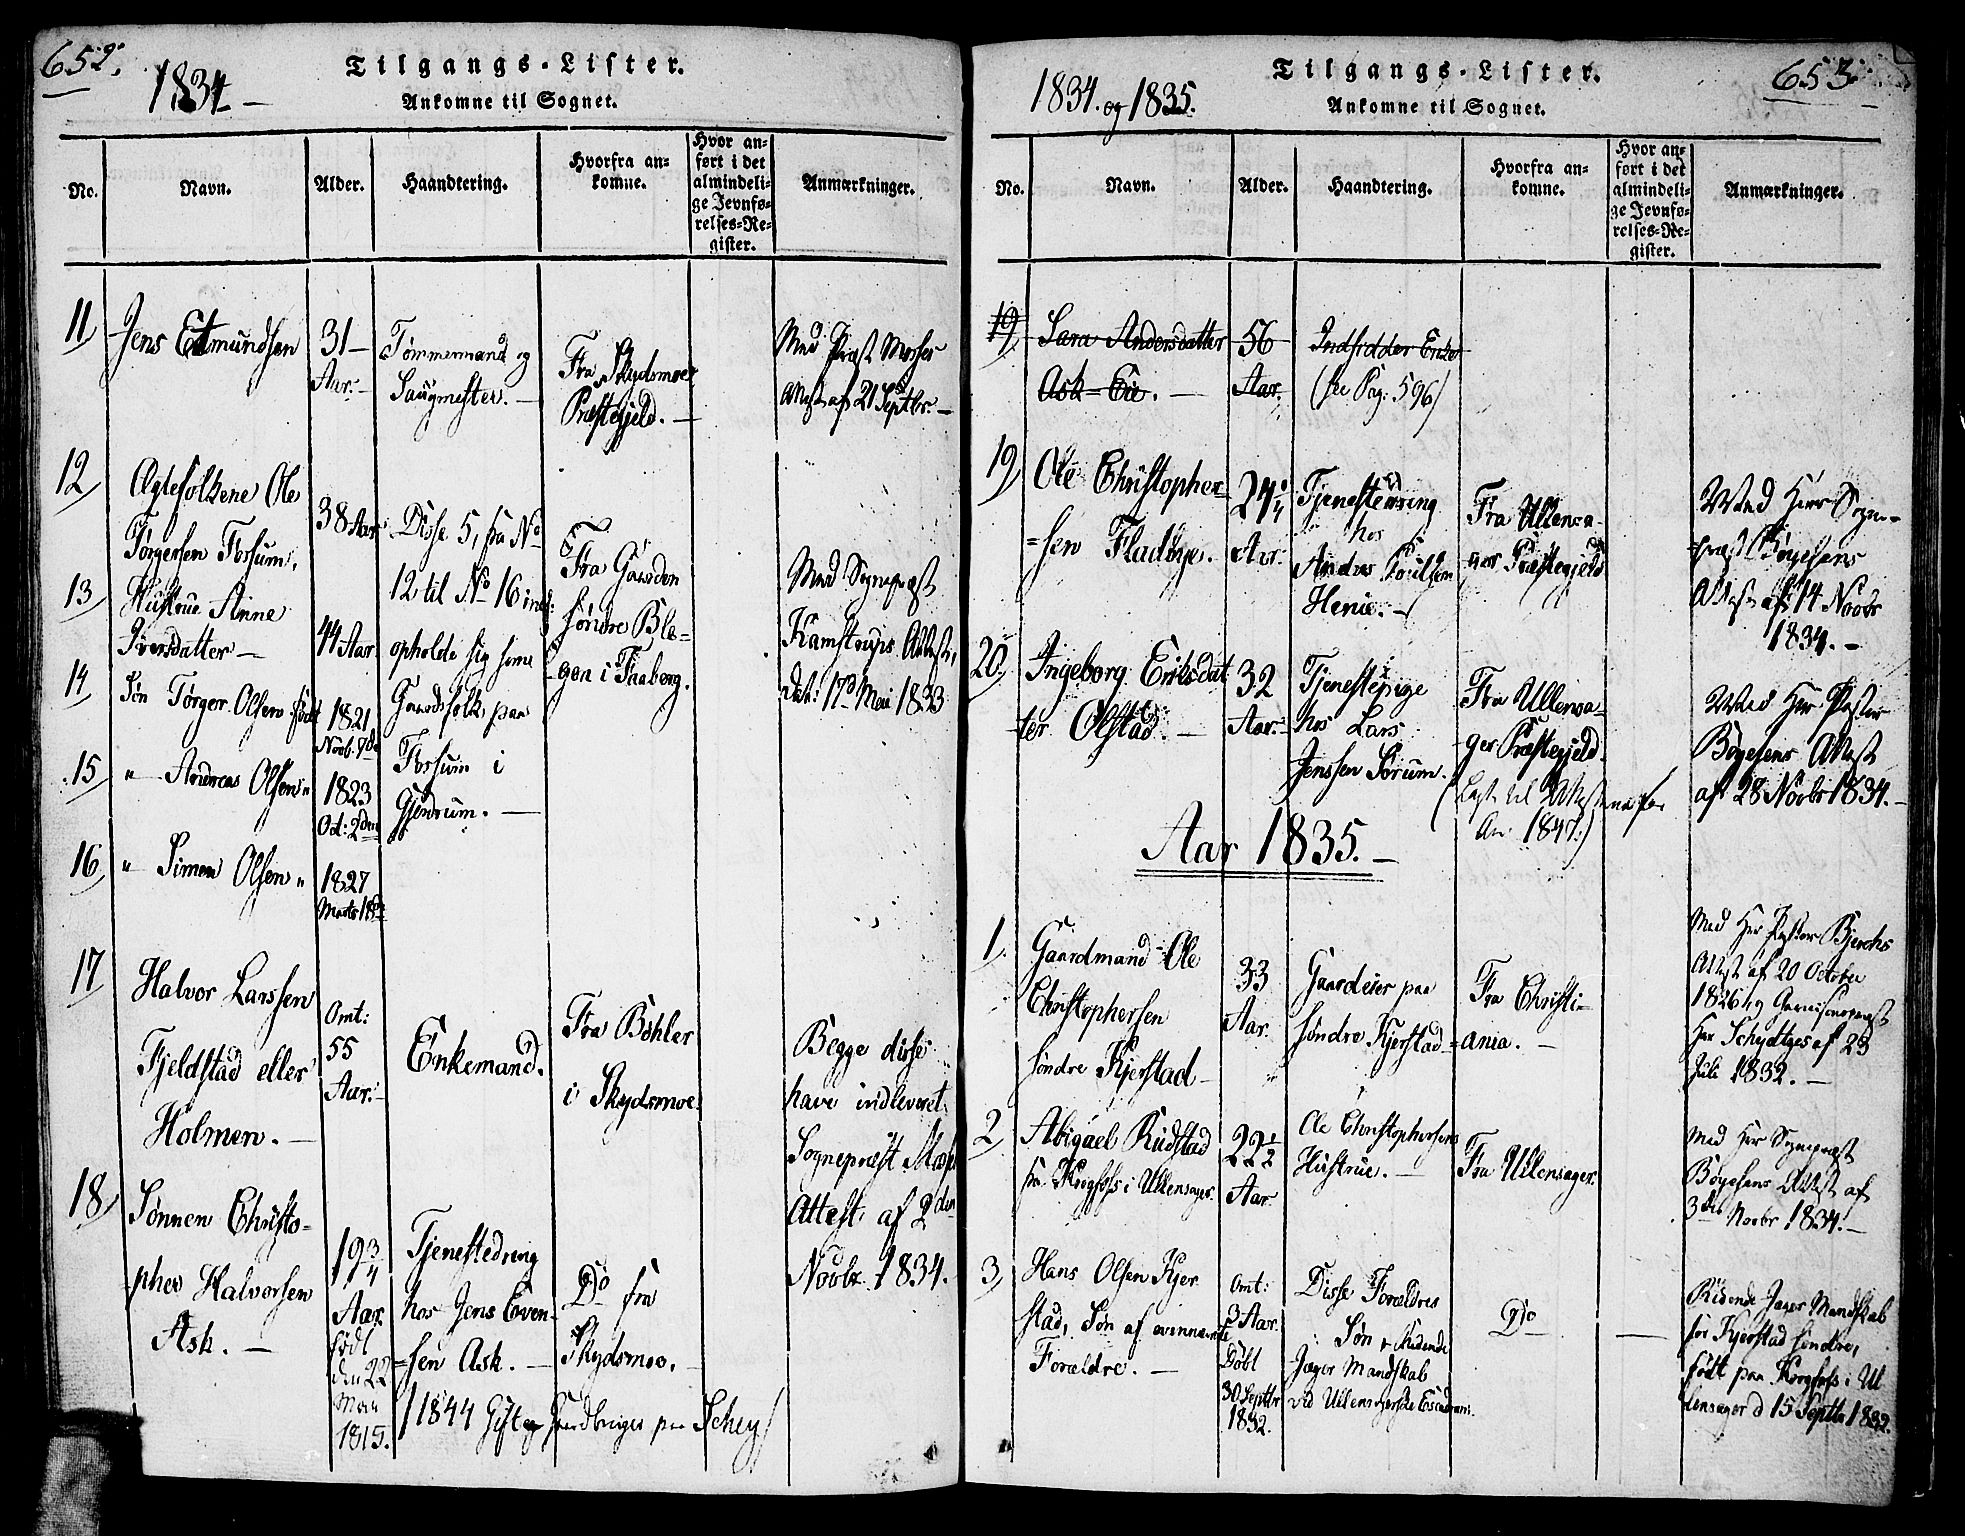 652.
1834
Tilgangs-Lister.
Ankomne til Sognet.
No.
Navn.
Alder.
Haandtering.
Hvorfra an-
komne.
Hvor an-
ført i det
almindeli-
ge Jevnfø-
relses-Re-
gister.
Anmærkninger.
11,
Jens Edmundsen
31
Aar.
Tømmermand og
Saugmester.
Fra Skydsmoe
Præstegjeld.
Med Præst Mosses
Attest af 21 Septbr.
12,
Ægtefolkene Ole
Törgersen Forsum,
38 Aar
Disse 5, fra No
12 til No 16 incl:
opholde sig some
Gaardsfolk paa
Forsum i
Gjerdrum.
Fra Gaarden
søndre Ble-
gen i Faaberg.
Med Sognepræst
Kamstrups Attest,
dat: 17de Mai 1833
13,
Hustrue Anne
Iversdatter
44 Aar
14,
Søn Törger Olsen født
1821
Novb. 7de
15,
" Andreas Olsen "
1823
Oct: 2den
16,
" Simen Olsen "
1827
Marts 18de
17,
Halvor Larssen
Fjeldstad eller
Holmen.
Omt:
55
Aar.
Enkemand.
Fra Bøhler
i Skydsmoe.
Begge disse
have indleveret
Sognepræst
Attest af 2den
Novbr. 1834.
18,
Sønnen Christo-
pher Halvorsen
Ask.
19 3/4
Aar.
født
den 22
Mai
1815.
Tjenestedreng
hos Jens Even-
sen Ask.
Do fra
Skydsmoe.
(1844 Gift og Gaardbruger paa Schey)
653
1834. og 1835.
Tilgangs-Lister.
Ankomne til Sognet.
No.
Navn.
Alder.
Haandtering.
Hvorfra an-
komne.
Hvor an-
ført i det
almindeli-
ge Jevnfø-
relses-Re-
gister.
Anmærkninger.
19,
Sara Andersdatter
Ask-Eie.
56
Aar.
Indsidder Enke
(see Pag: 596)
19,
Ole Christopher-
=sen Fladbye.
24 1/4
Aar.
Tjenestedreng
hos
Andres Poulsen
Henie.
Fra Ullensa-
ger Præstegjeld
Med Herr Sogne-
præst Bøyesens
Attest af 14 Novbr
1834.
20,
Ingeborg Eriksdat
ter Olstad.
32
Aar.
Tjenestepige
hos Lars
Jenssen Sørum.
Fra Ullensa-
ger Præstegjeld.
Med Her Pastor
Bøyesens Attest
af 28 Novbr 1834.
til Attesterne for
Aar 1847.)
Aar 1835.
1,
Gaardmand Ole
Christophersen
søndre Kjerstad
33
Aar.
Gaardeier paa
søndre Kjerstad
Fra Christi-
ania.
Med Her Pastor Bjerchs
Attest af 20 October
1826 og Garnisonspræst
Her Schydtzes af 23
Juli 1832.
2,
Abigael Rudstad
fra Krogfoss i Ullensager.
22 1/2
Aar
Ole Christophersens
Hustrue.
Fra Ullensager.
Med Her Sognepræst
Bøyesens Attest af
3die Novbr 1834.
3,
Hans Olsen Kjer
stad, Søn af ovennævnte
Forældre.
Omt:
3 Aar.
Døbt
30 Septbr
1832.
Disse Forældres
Søn & Ridende
Jæger Mandskab
ved Ullensagerske Escadrons.
Do
Ridende Jæger Mandskab
for Kjerstad søndre,
født paa Krogfoss i Ul
lensager d 15 Septbr 1832.